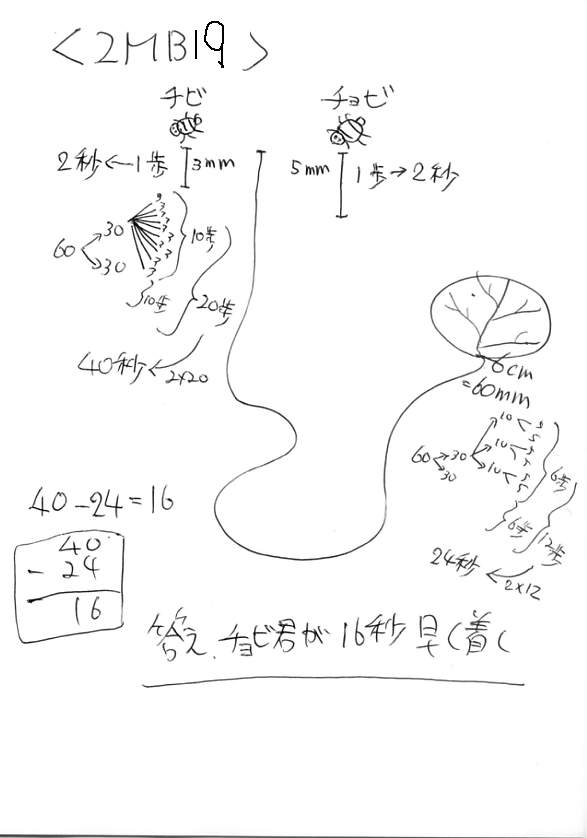 <2MB19>
チビ
チョビ
2秒←1歩 3mm
5mm 1歩→2秒
60 30 30
3 3 3 3 3 3 3
10歩
10歩
20歩
40秒←2×20
6cm
=60mm
60 30 30
10 5 5
10 5 5
10 5 5
6歩
6歩
12歩
24秒←2×12
40-24=16
40
- 24
16
答え.チョビ君が16秒早く着く